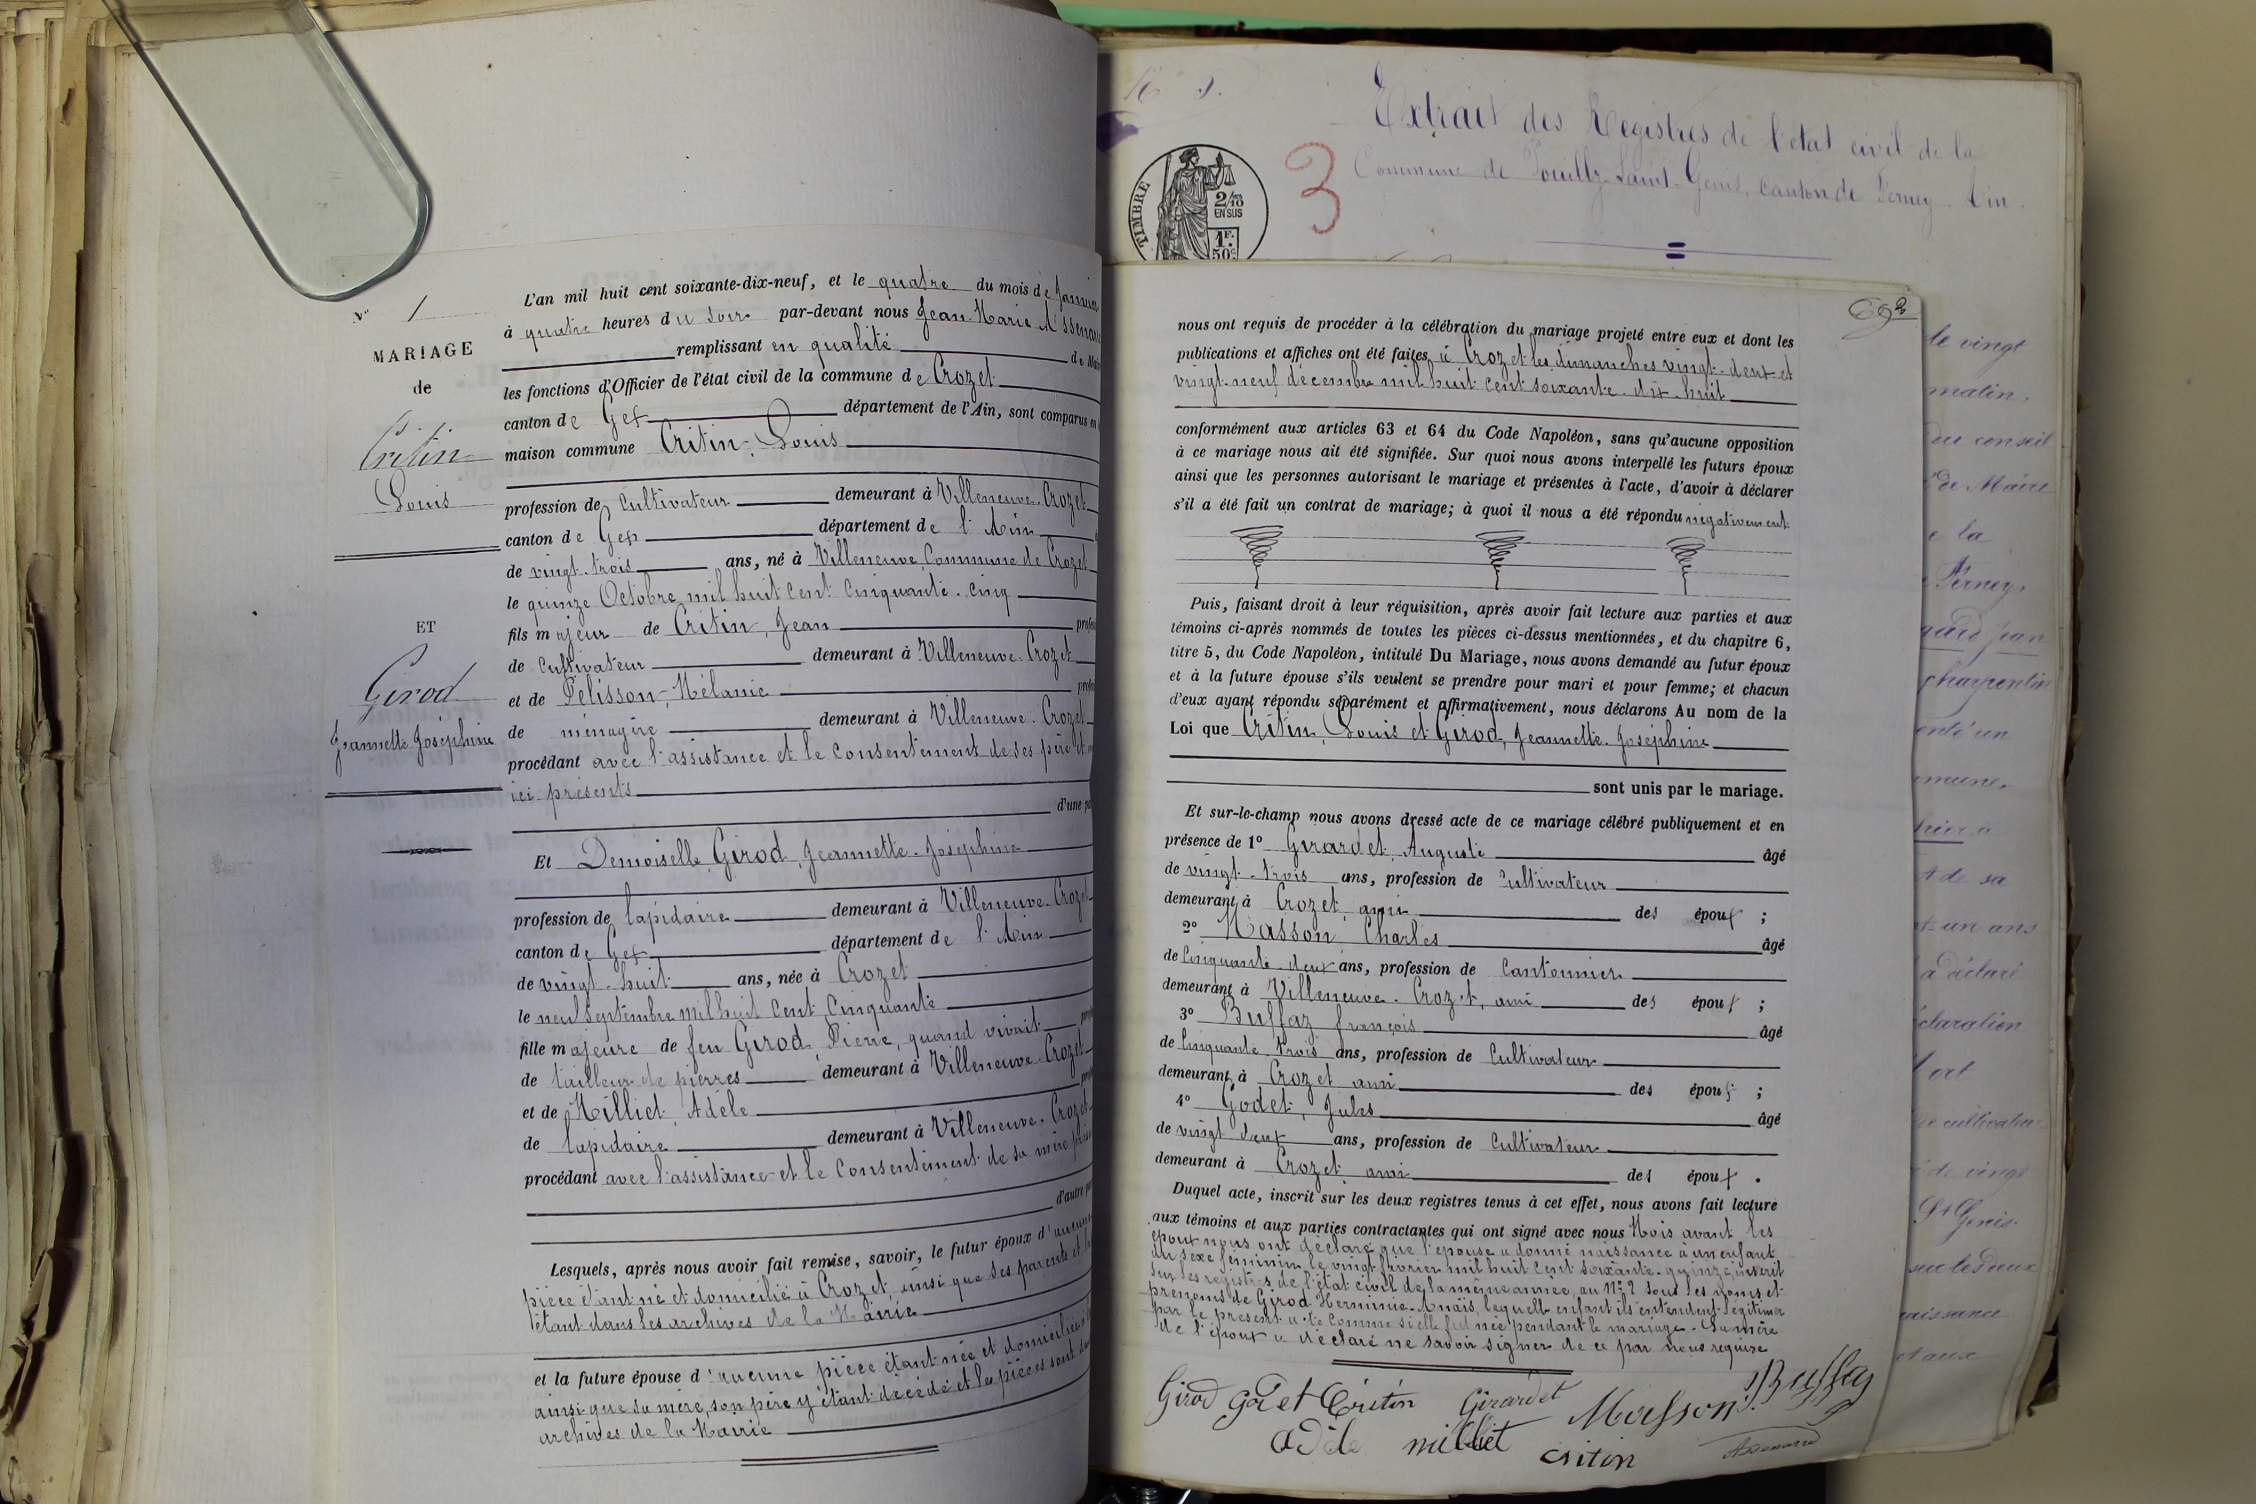 N° 1
MARIAGE
de
Critin
Louis
ET
Girod
Jeannette Joséphine
L'an mil huit cent soixante-dix-neuf, et le quatre du mois de Janvier
à quatre heures du soir par-devant nous Jean-Marie
remplissant en qualité de Maire
les fonctions d'Officier de l'état civil de la commune de Crozet
canton de Gex département de l'Ain, sont comparus en
maison commune Critin, Louis
profession de Cultivateur demeurant à Villeneuve-Crozet
canton de Gex département de l'Ain
de vingt-trois ans, né à Villeneuve, Commune de Crozet
le quinze Octobre mil huit cent cinquante-cinq
fils majeur de Critin, Jean
de Cultivateur demeurant à Villeneuve-Crozet
et de Pélisson, Mélanie
de ménagère demeurant à Villeneuve-Crozet
procédant avec l'assistance et le consentement de ses père et
ici présents
d'une
Et Demoiselle Girod, Jeannette-Joséphine
profession de lapidaire demeurant à Villeneuve-Crozet
canton de Gex département de l'Ain
de vingt-huit ans, née à Crozet
le neuf Septembre mil huit cent cinquante
fille majeure de feu Girod, Pierre, quand vivait
de tailleur de pierres demeurant à Villeneuve-Crozet
et de Milliet, Adèle
de lapidaire demeurant à Villeneuve-Crozet
procédant avec l'assistance et le consentement de sa mère
d'autre
Lesquels, après nous avoir fait remise, savoir, le futur époux d'aucune
pièce étant né et domicilié à Crozet ainsi que ses parents et
étant dans les archives de la Mairie
et la future épouse d'aucune pièce étant née et domiciliée
ainsi que sa mère, son père y étant décédé et les pièces sont
archives de la Mairie
Extrait des Registres de l'état civil de la
Commune de Pouilly-Saint-Genis, canton de Ferney Ain.
TIMBRE
2/10
EN SUS
1F.
50C.
3
nous ont requis de procéder à la célébration du mariage projeté entre eux et dont les
publications et affiches ont été faites à Crozet les dimanches vingt-deux et
vingt-neuf décembre mil huit cent soixante-dix-huit
conformément aux articles 63 et 64 du Code Napoléon, sans qu'aucune opposition
à ce mariage nous ait été signifiée. Sur quoi nous avons interpellé les futurs époux
ainsi que les personnes autorisant le mariage et présentes à l'acte, d'avoir à déclarer
s'il a été fait un contrat de mariage; à quoi il nous a été répondu négativement
Puis, faisant droit à leur réquisition, après avoir fait lecture aux parties et aux
témoins ci-après nommés de toutes les pièces ci-dessus mentionnées, et du chapitre 6,
titre 5, du Code Napoléon, intitulé Du Mariage, nous avons demandé au futur époux
et à la future épouse s'ils veulent se prendre pour mari et pour femme; et chacun
d'eux ayant répondu séparément et affirmativement, nous déclarons Au nom de la
Loi que Critin, Louis et Girod, Jeannette-Joséphine
sont unis par le mariage.
Et sur-le-champ nous avons dressé acte de ce mariage célébré publiquement et en
présence de 1° Girardet, Auguste âgé
de vingt-trois ans, profession de Cultivateur
demeurant à Crozet, ami des époux ;
2° Masson, Charles âgé
de Cinquante-deux ans, profession de Cantonnier
demeurant à Villeneuve-Crozet, ami des époux ;
3° Buffaz François âgé
de Cinquante-trois ans, profession de Cultivateur
demeurant à Crozet ami des époux ;
4° Godet, Jules âgé
de vingt-deux ans, profession de Cultivateur
demeurant à Crozet ami des époux .
Duquel acte, inscrit sur les deux registres tenus à cet effet, nous avons fait lecture
aux témoins et aux parties contractantes qui ont signé avec nous Mais avant les
époux nous ont déclaré que l'épouse a donné naissance à un enfant
du sexe féminin le vingt février mil huit cent soixante-quinze, inscrit
sur les registres de l'état civil de la même année, au N° 2 sous les noms et
prénoms de Girod Herminie-Anaïs, laquelle enfant ils entendent légitimer
par le présent acte comme si elle fut née pendant le mariage. La mère
de l'époux a déclaré ne savoir signer de ce par nous requise
Girod Godet Critin Girardet Masson Buffaz
Adèle milliet critin
le vingt
matin,
du conseil
de Maire
la
Ferney,
Jean
charpentier
un
a déclaré
déclaration
cultivateur
de vingt
St Genis.